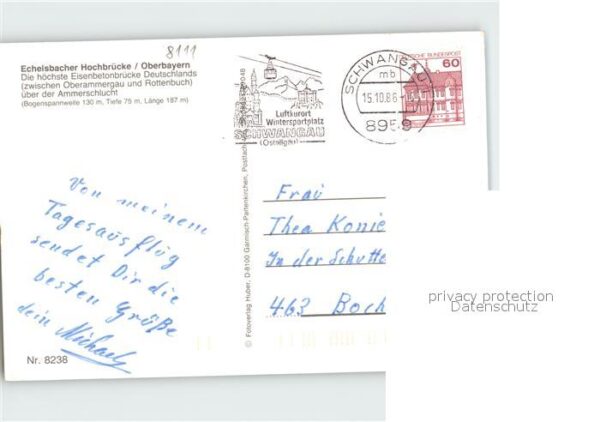 8111
Echelsbacher Hochbrücke / Oberbayern
Die höchste Eisenbetonbrücke Deutschlands
(zwischen Oberammergau und Rottenbuch)
über der Ammerschlucht
(Bogenspannweite 130 m, Tiefe 75 m, Länge 187 m)
Luftkurort
Wintersportplatz
SCHWANGAU
(Ostallgäu)
SCHWANGAU
mb
15.10.86
8959
DEUTSCHE BUNDESPOST
60
Von meinem
Tagesausflug
sendet Dir die
besten Grüße
dein Michael
Frau
Thea Konie
In der Schutte
463 Boch
© Fotoverlag Huber, D-8100 Garmisch-Partenkirchen, Postfach
Nr. 8238
privacy protection
Datenschutz